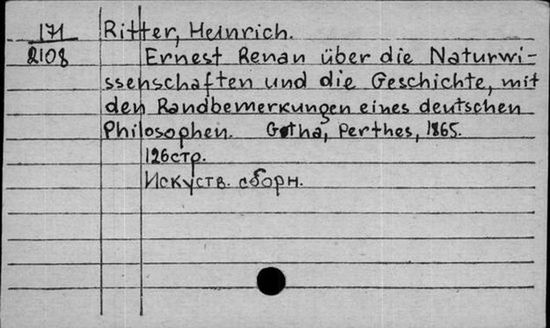 171 Ritter, Heinrich.
2108 Ernest Renan über die Naturwi-
ssenschaften und die Geschichte, mit
den Randbemerkungen eines deutschen
Philosophen. Gotha, Perthes, 1865.
126стр.
Искуств. сборн.